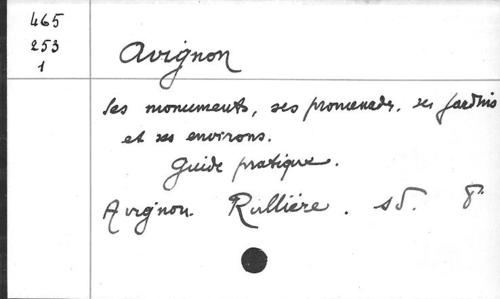 465
253
1
Avignon
Ses monuments, ses promenades, ses jardins
et ses environs.
Guide pratique.
Avignon. Rullière. sd. 8°